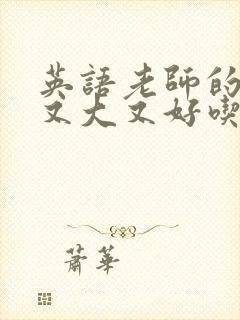 英語老師的
又大又好喫
蕭華